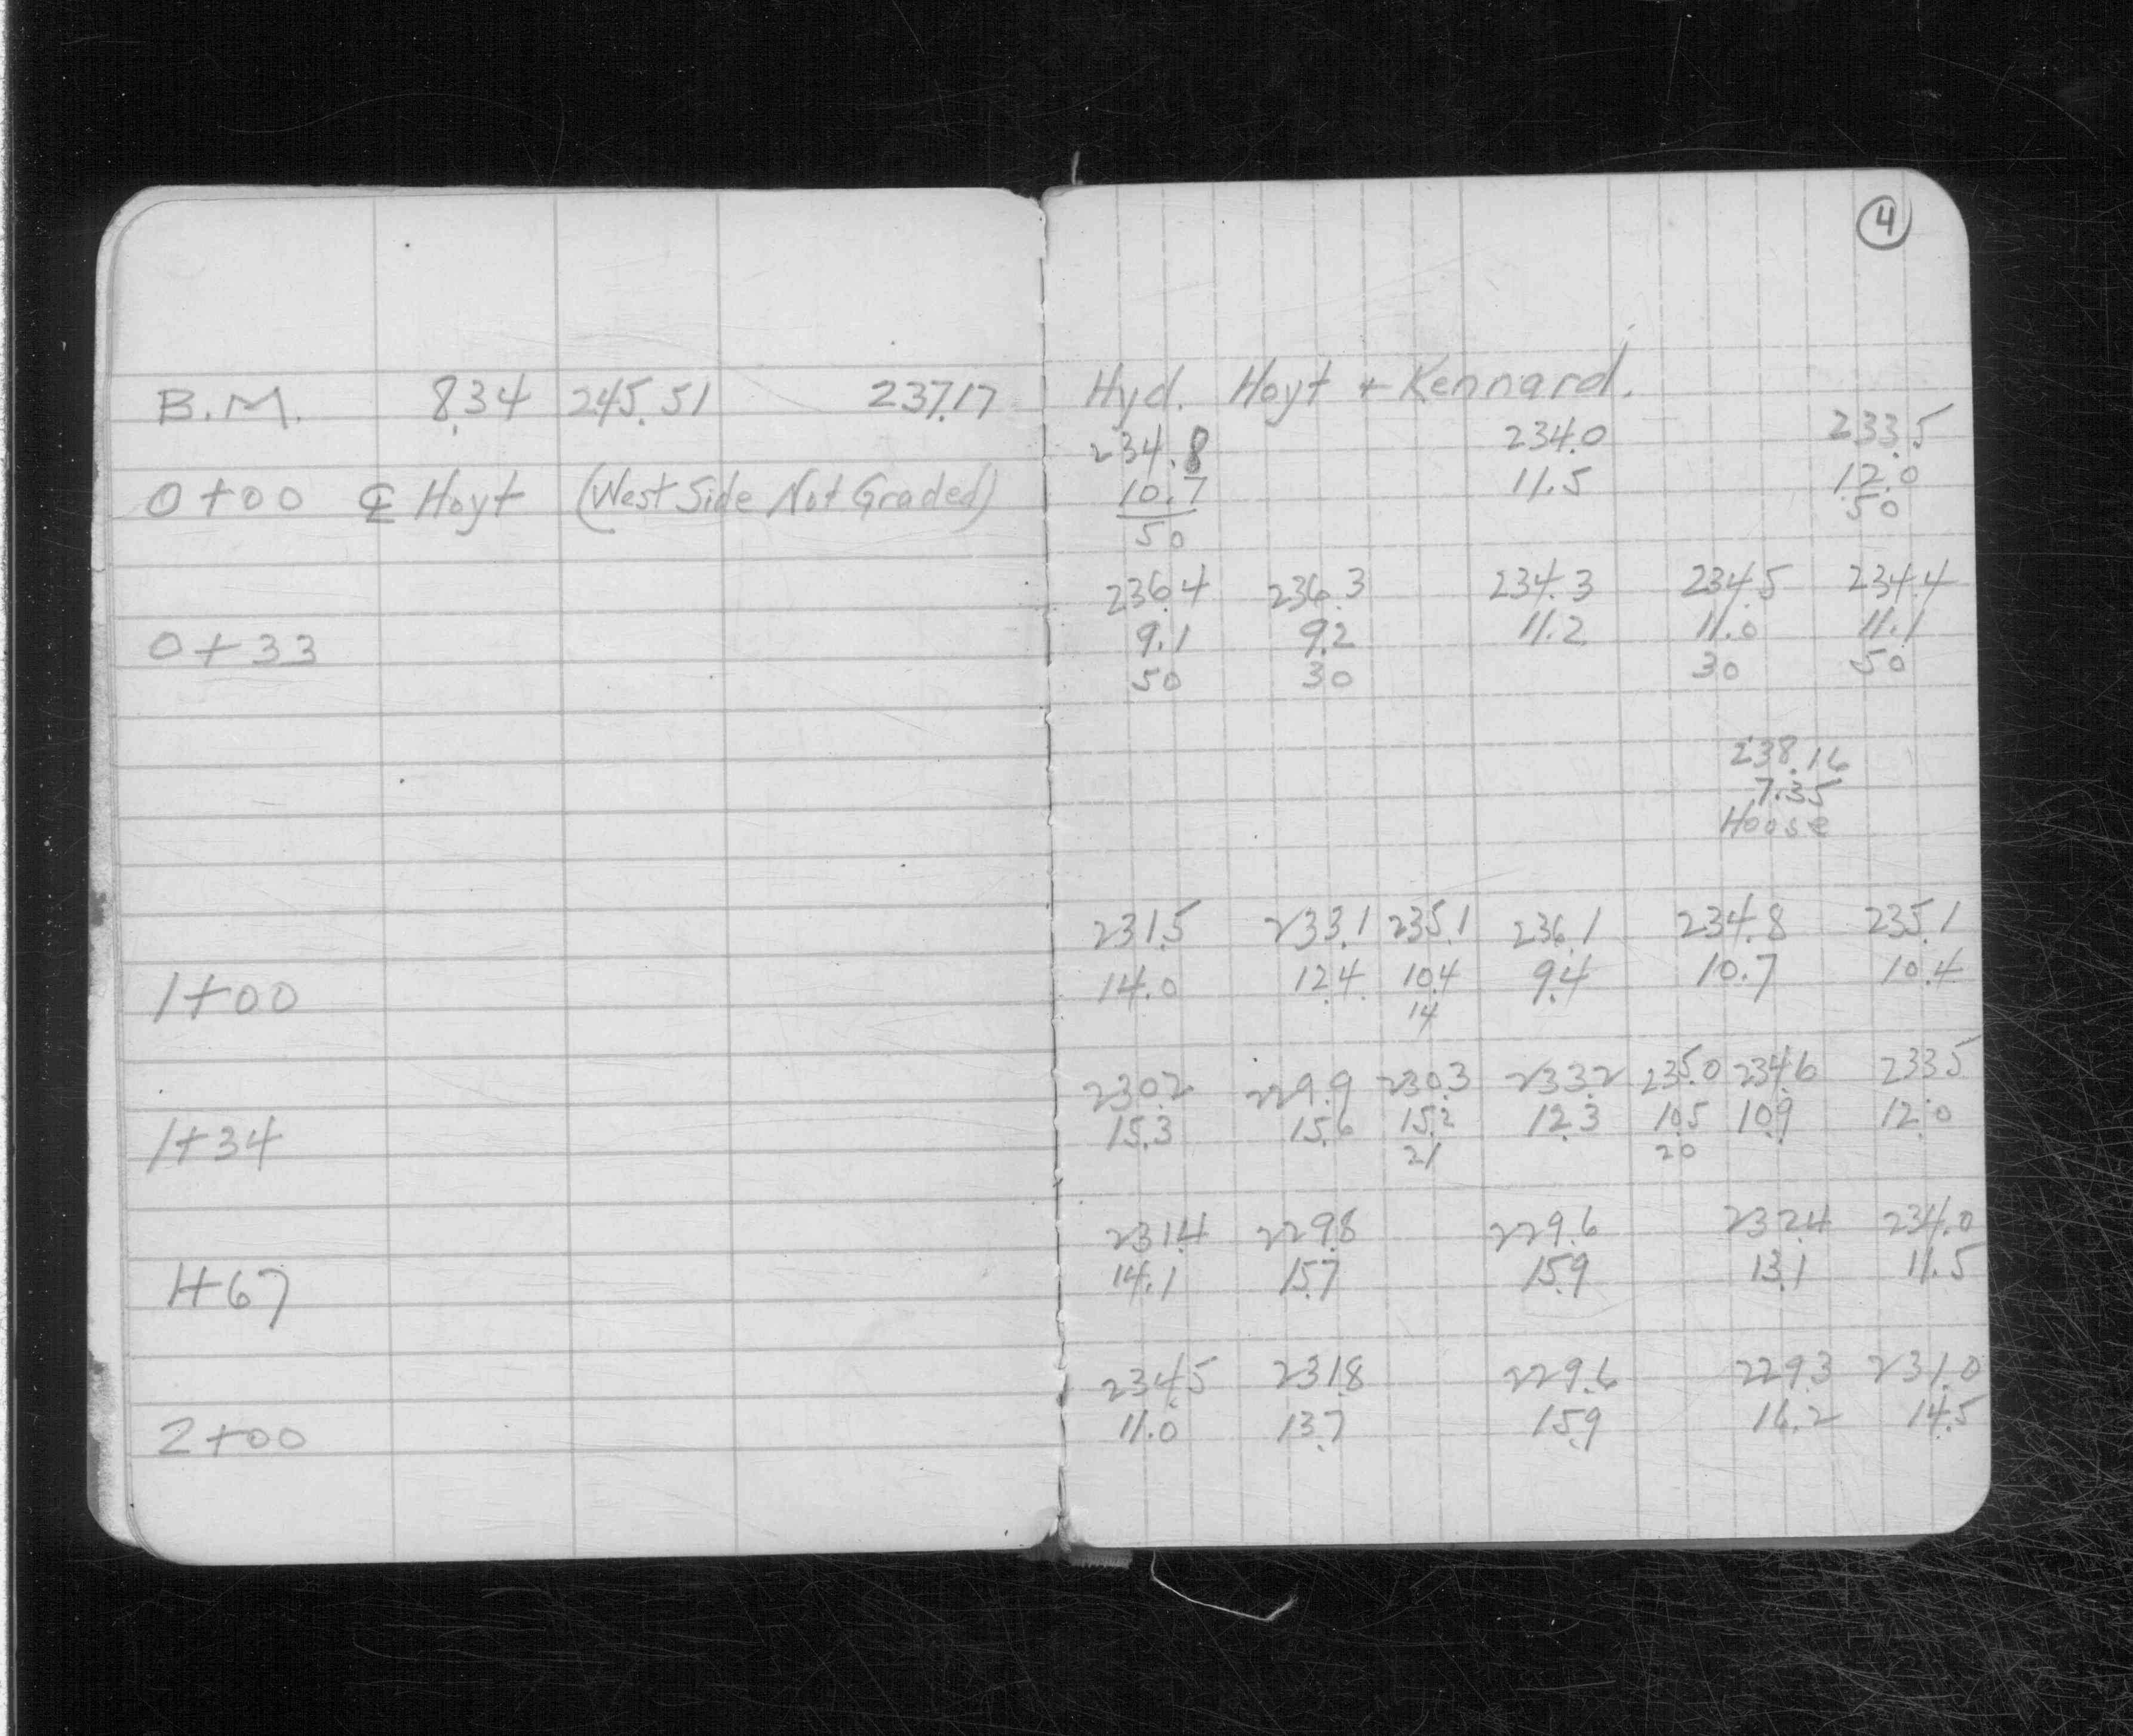 4
B.M. 8.34 245.51 237.17 Hyd. Hoyt + Kennard.
234.8 234.0 233.5
0+00 ℄ Hoyt (West Side Not Graded) 10.7 11.5 12.0
50 50
236.4 236.3 234.3 234.5 234.4
0+33 9.1 9.2 11.2 11.0 11.1
50 30 30 50
238.16
7.35
House
231.5 233.1 235.1 236.1 234.8 235.1
1+00 14.0 12.4 10.4 9.4 10.7 10.4
14
230.2 229.9 230.3 233.2 235.0 234.6 233.5
1+34 15.3 15.6 15.2 12.3 10.5 10.9 12.0
21 20
231.4 229.8 229.6 232.4 234.0
1+67 14.1 15.7 15.9 13.1 11.5
234.5 231.8 229.6 229.3 231.0
2+00 11.0 13.7 15.9 16.2 14.5